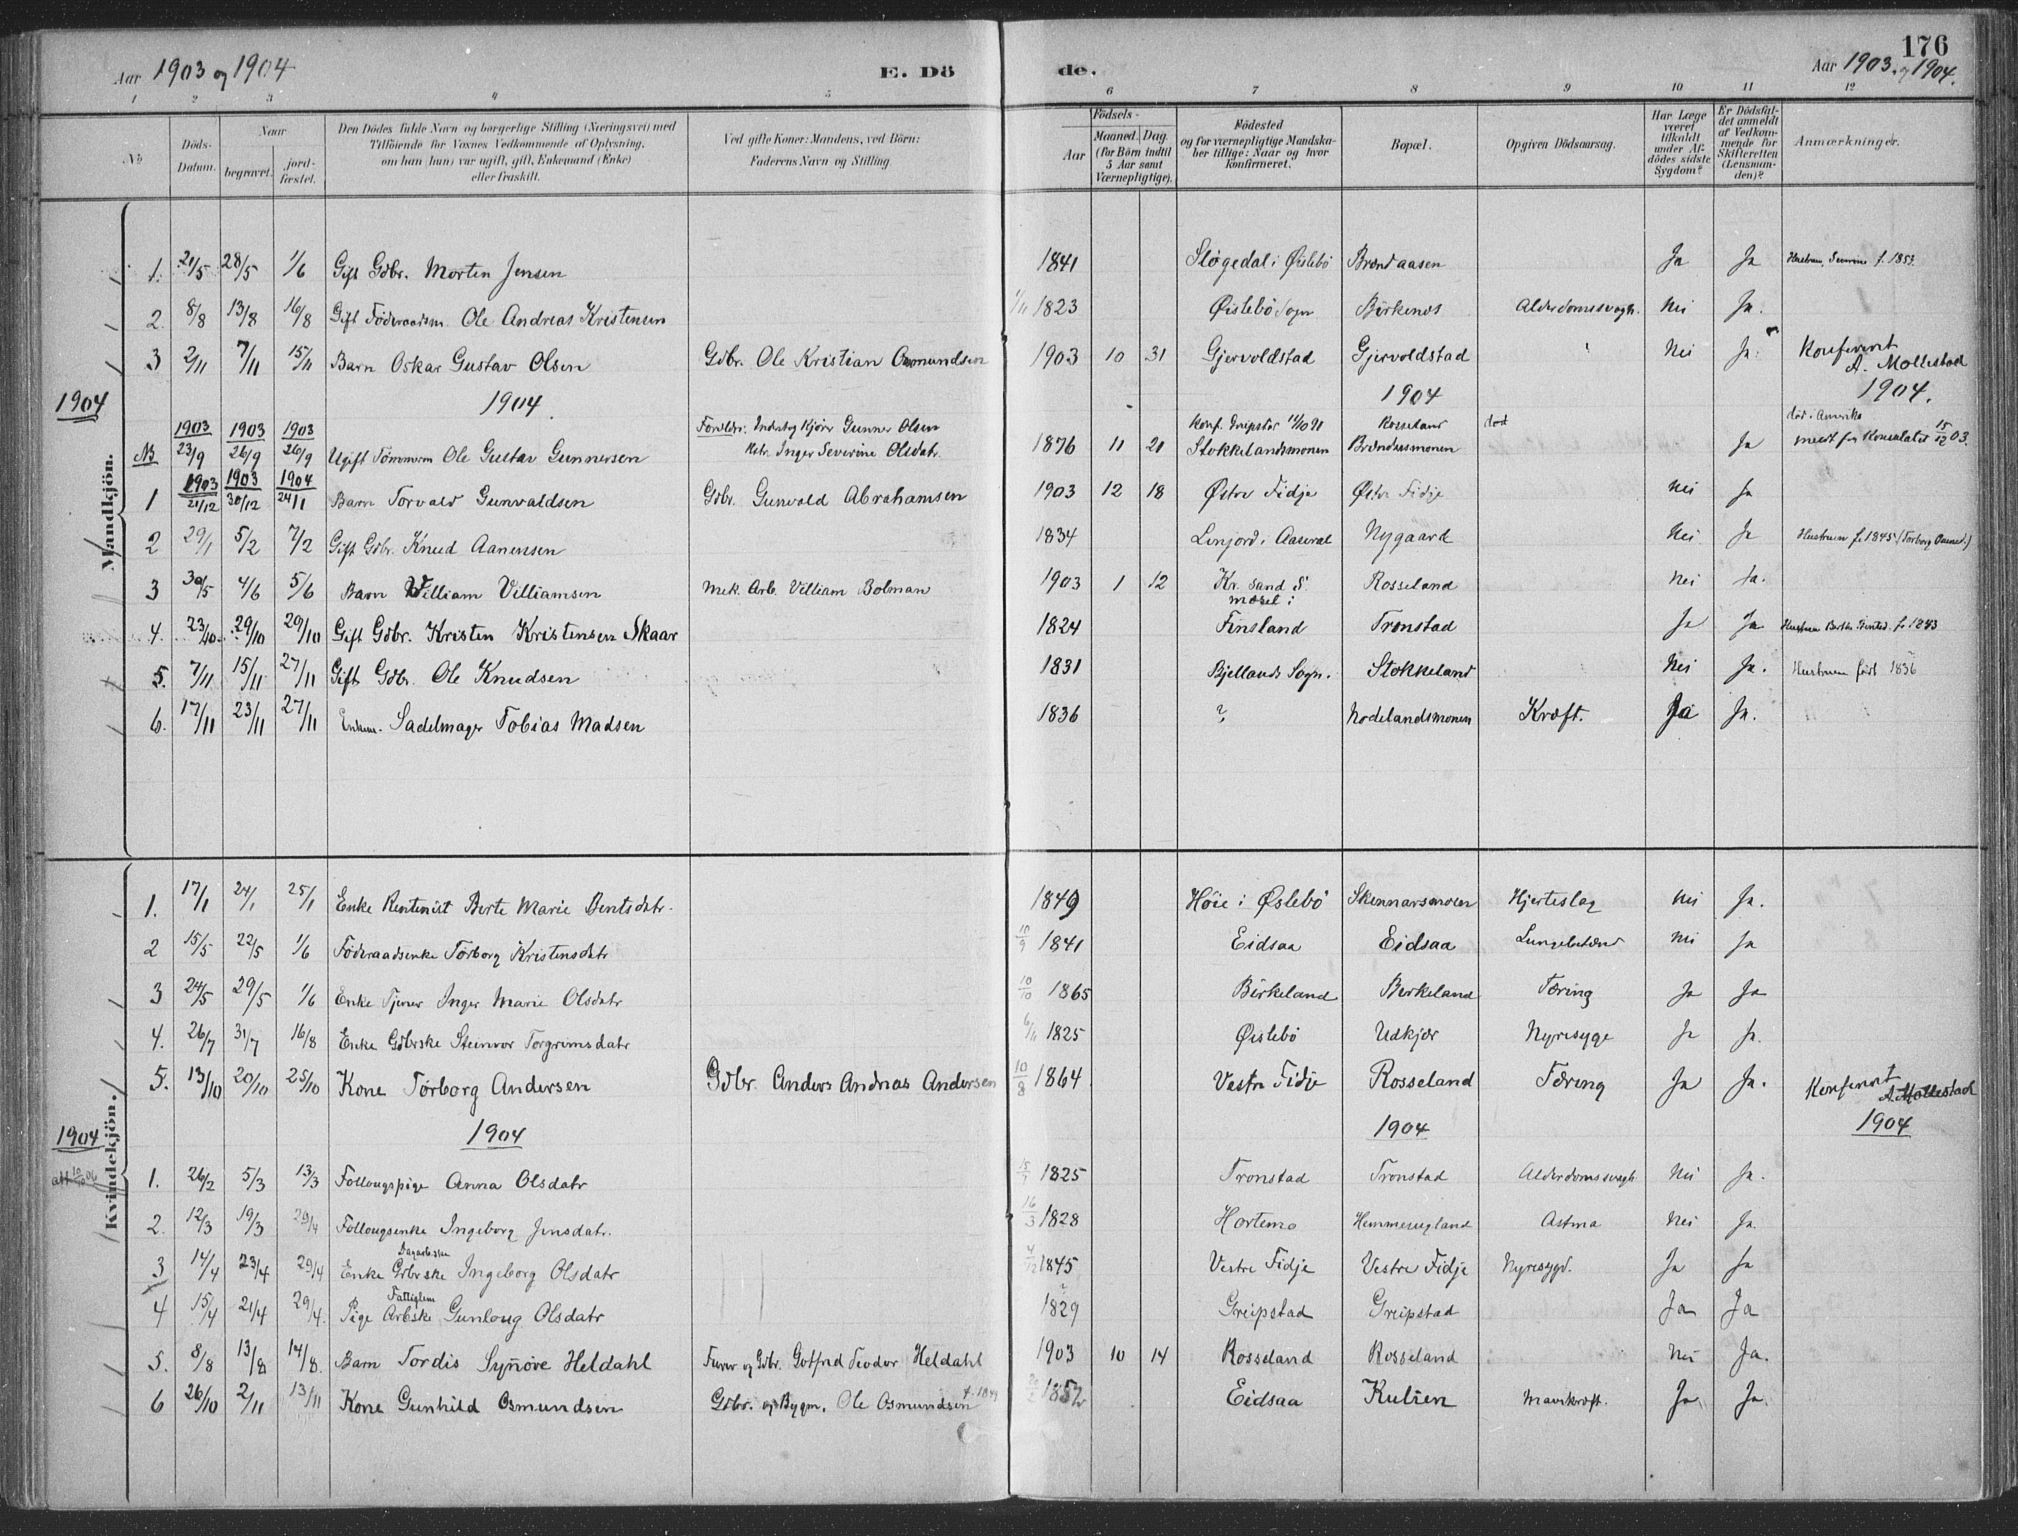 176
Aar 1903 og 1904 E. Dö de. Aar 1903 og 1904.
1 2 3 4 5 6 7 8 9 10 11 12
No Döds-Datum. Naar begravet. jordfæstet. Den Dödes fulde Navn og borgerlige Stilling (Næringsvei) med Tilföiende for Voxnes Vedkommende af Oplysning, om han (hun) var ugift, gift, Enkemand (Enke) eller fraskilt. Ved gifte Koner: Mandens, ved Börn: Faderens Navn og Stilling. Födsels- Aar Maaned. Dag. (for Börn indtil 5 Aar samt Værnepligtige). Födested og for værnepligtige Mandskaber tillige: Naar og hvor konfirmeret. Bopæl. Opgiven Dödsaarsag. Har Læge været tilkaldt under Afdödes sidste Sygdom? Er Dödsfaldet anmeldt af Vedkommende for Skifteretten (Lensmanden)? Anmærkninger.
Mandkjön.
1. 21/5 28/5 1/6 Gift Gdbr. Morten Jensen 1841 Slögedal i Øislebö Brændaasen Ja Ja Hustru f. 1853
2. 8/8 13/8 16/8 Gift Föderaadsm. Ole Andreas Kristensen 1/11 1823 Øislebö Sogn Birkenes Alderdomssvagh. Nei Ja.
3 2/11 7/11 15/11 Barn Oskar Gustav Olsen Gdbr. Ole Kristian Osmundsen 1903 10 31 Gjervoldstad Gjervoldstad Nei Ja. Konfereret A. Mollestad
1904 1904. 1904 1904.
1903 1903 1903 Forældr. Gunner Olsen Konf. Greipstad Rosseland död död i Amerika
23/9 26/9 26/9 Ugift Tömmerm. Ole Gustav Gunnersen Inger Severine Olsdatr. 1876 11 20 Stokkelandsmonen Brændaasmonen Ja medt fra Konsulatet 15/12 03.
1903 1903 1904
1 21/12 30/12 24/1 Barn Torvald Gunvaldsen Gdbr. Gunvald Abrahamsen 1903 12 18 Østre Fidje Østre Fidje Nei Ja
2 29/1 5/2 7/2 Gift Gdbr. Knud Aanensen 1834 Linjord i Aaseral Nygaard Nei Ja Hustruen f. 1845
3 30/5 4/6 5/6 Barn William Villiamsen Mek. Arb. Villiam Bolman 1903 1 12 Kr. Sand S. Rosseland Nei Ja.
4. 23/10 29/10 29/10 Gift Gdbr. Kristen Kristensen Skaar 1824 Finsland Tronstad Ja Ja f. 1843
5. 7/11 15/11 27/11 Gift Gdbr. Ole Knudsen 1831 Bjellands Sogn. Stokkeland Nei Ja. Hustruen födt 1836
6. 17/11 23/11 27/11 Enkem. Sadelmager Tobias Madsen 1836 ? Nodelandsmonen Kræft. Ja Ja.
Kvindekjön.
1. 17/1 24/1 25/1 Enke Rentenist Berte Marie Bentsdatr. 1849 Höie i Øslebö Skennarsmoen Hjerteslag Nei Ja.
2 15/5 22/5 1/6 Föderaadsenke Törborg Kristensdatr 10/9 1841 Eidsaa Eidsaa Lungebetænd Nei Ja
3 24/5 29/5 1/6 Enke Tjener Inger Marie Olsdatr 10/10 1865 Birkeland Birkeland Tæring Ja Ja
4. 26/7 31/7 16/8 Enke Gdbrske Steinvor Torgrimsdatr 1825 Øislebö Udkjær Nyresyge Ja Ja.
5. 13/10 20/10 25/10 Kone Törborg Andersen Gdbr. Anders Andreas Andersen 10/8 1864 Vestre Fidje Rosseland Tæring Ja Ja. Konfereret A. Mollestad
1904 1904 1904 1904
1. 26/2 5/3 13/3 Follougspige Anna Olsdatr 1825 Tronstad Tronstad Alderdomssvagh. Nei Ja.
2. 12/3 19/3 29/4 Follougsenke Ingeborg Jensdatr. 16/3 1828 Hortemo Hemmerugland Astma Nei Ja
3 14/4 23/4 29/4 Enke Gdbrske Ingeborg Olsdatr 4/12 1845 Vestre Fidje Vestre Fidje Nyresygd. Ja Ja
4 15/4 21/4 29/4. Pige Arbske Fattiglem Gunloug Olsdatr ? 1829 Greipstad Greipstad Ja Ja
5. 8/8 13/8 14/8. Barn Tordis Synöve Heldahl Furer og Gdbr. Gotfred Teodor Heldahl 1903 10 14 Rosseland Rosseland Nei Ja.
6 26/10 2/11 13/11 Kone Gunhild Osmundsen Gdbr. og Bygm. Ole Osmundsen 1852 Eidsaa Kulien Mavekræft. Ja Ja.